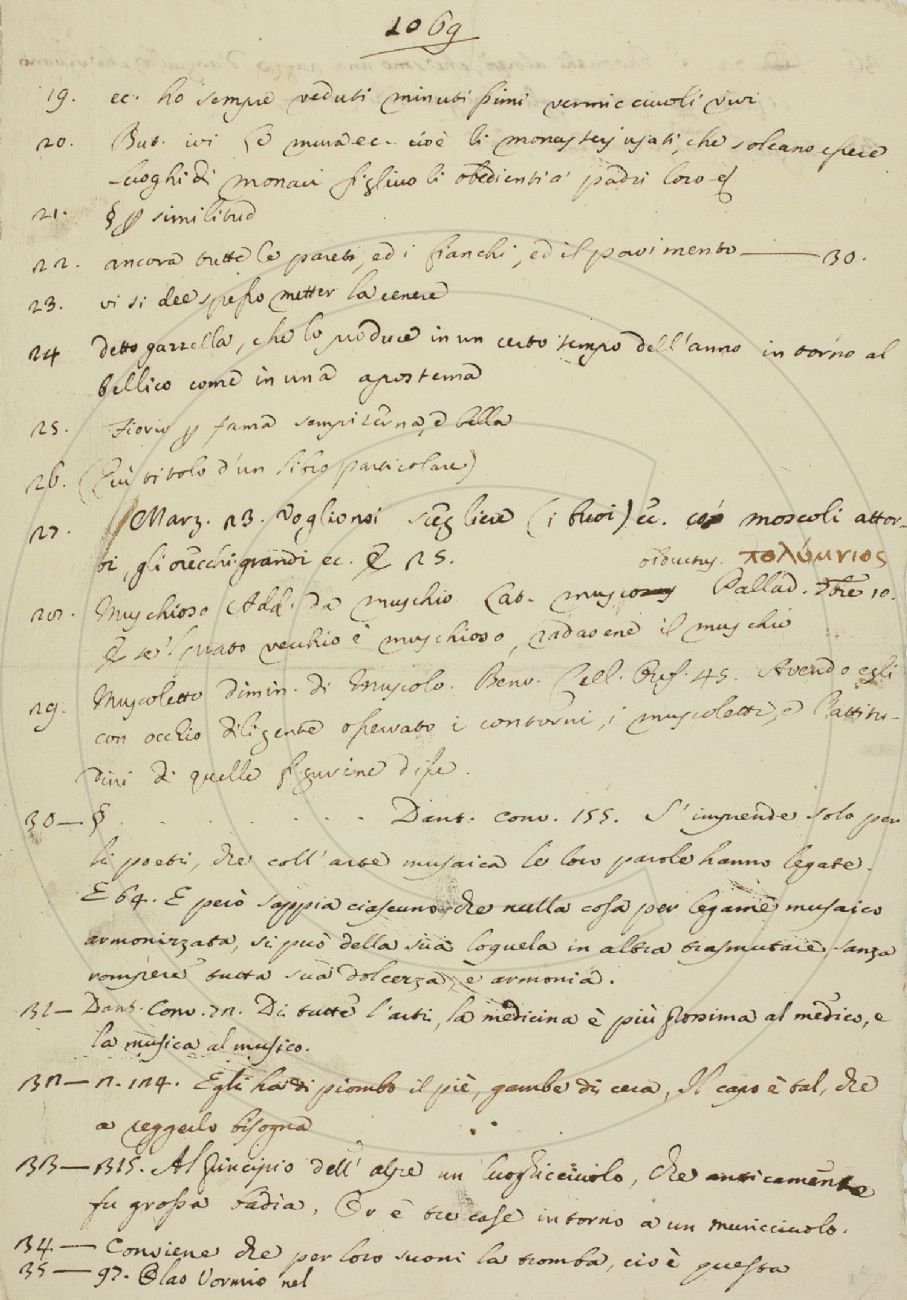 1069
19. ec. ho sempre veduti minutissimi vermicciuoli vivi
20. But. ivi Le mura ec. cioè li monasterj usati, che soleano essere
luoghi di monaci figliuoli obedienti a' padri loro
21. § similitud
22. ancora tutte le pareti, ed i fianchi, ed il pavimento — 30.
23. vi si dee spesso metter la cenere
24 detto gazzella, che lo produce in un certo tempo dell'anno intorno al
bellico come in una apostema
25. Fiorir fama sempiterna, e bella
26. (Più titolo d'un libro particolare)
27. Marz. 23. Voglionsi scegliere (i buoi) ec. co' moscoli attor-
ti, gli orecchi grandi ec. E 25. obductus. πολύμνιος
28. Muschioso Add. da muschio Lat. Pallad. 10.
E se 'l prato vecchio è muschioso, radasene il muschio
29. Muscoletto dimin. di Muscolo. Benv. Cell. Oref. 45. Avendo egli
con occhio diligente osservato i contorni, i muscoletti, e l'attitu-
dini di quelle figurine disse.
30 — § . . . . . . Dant. Conv. 155. S'imprende solo per
li poeti, che coll'arte musaica le loro parole hanno legate.
E 64. E però sappia ciascuno, che nulla cosa per legame musaico
armonizzata, si può della sua loquela in altra trasmutare, sanza
rompere tutta sua dolcezza, e armonia.
31 — Dant. Conv. 72. Di tutte l'arti, la medicina è più prossima al medico, e
la musica al musico.
32 — 2. 124. Egli ha di piombo il piè, gambe di cera, Il capo è tal, che
a reggerlo bisogna
33 — 315. Al principio dell'alpe un luoghicciuolo, che anticamente
fu grossa badia, Or è tre case intorno a un muricciuolo.
34 — Conviene che per loro suoni la tromba, cioè questa
35 — 97. Olao Vormio nel